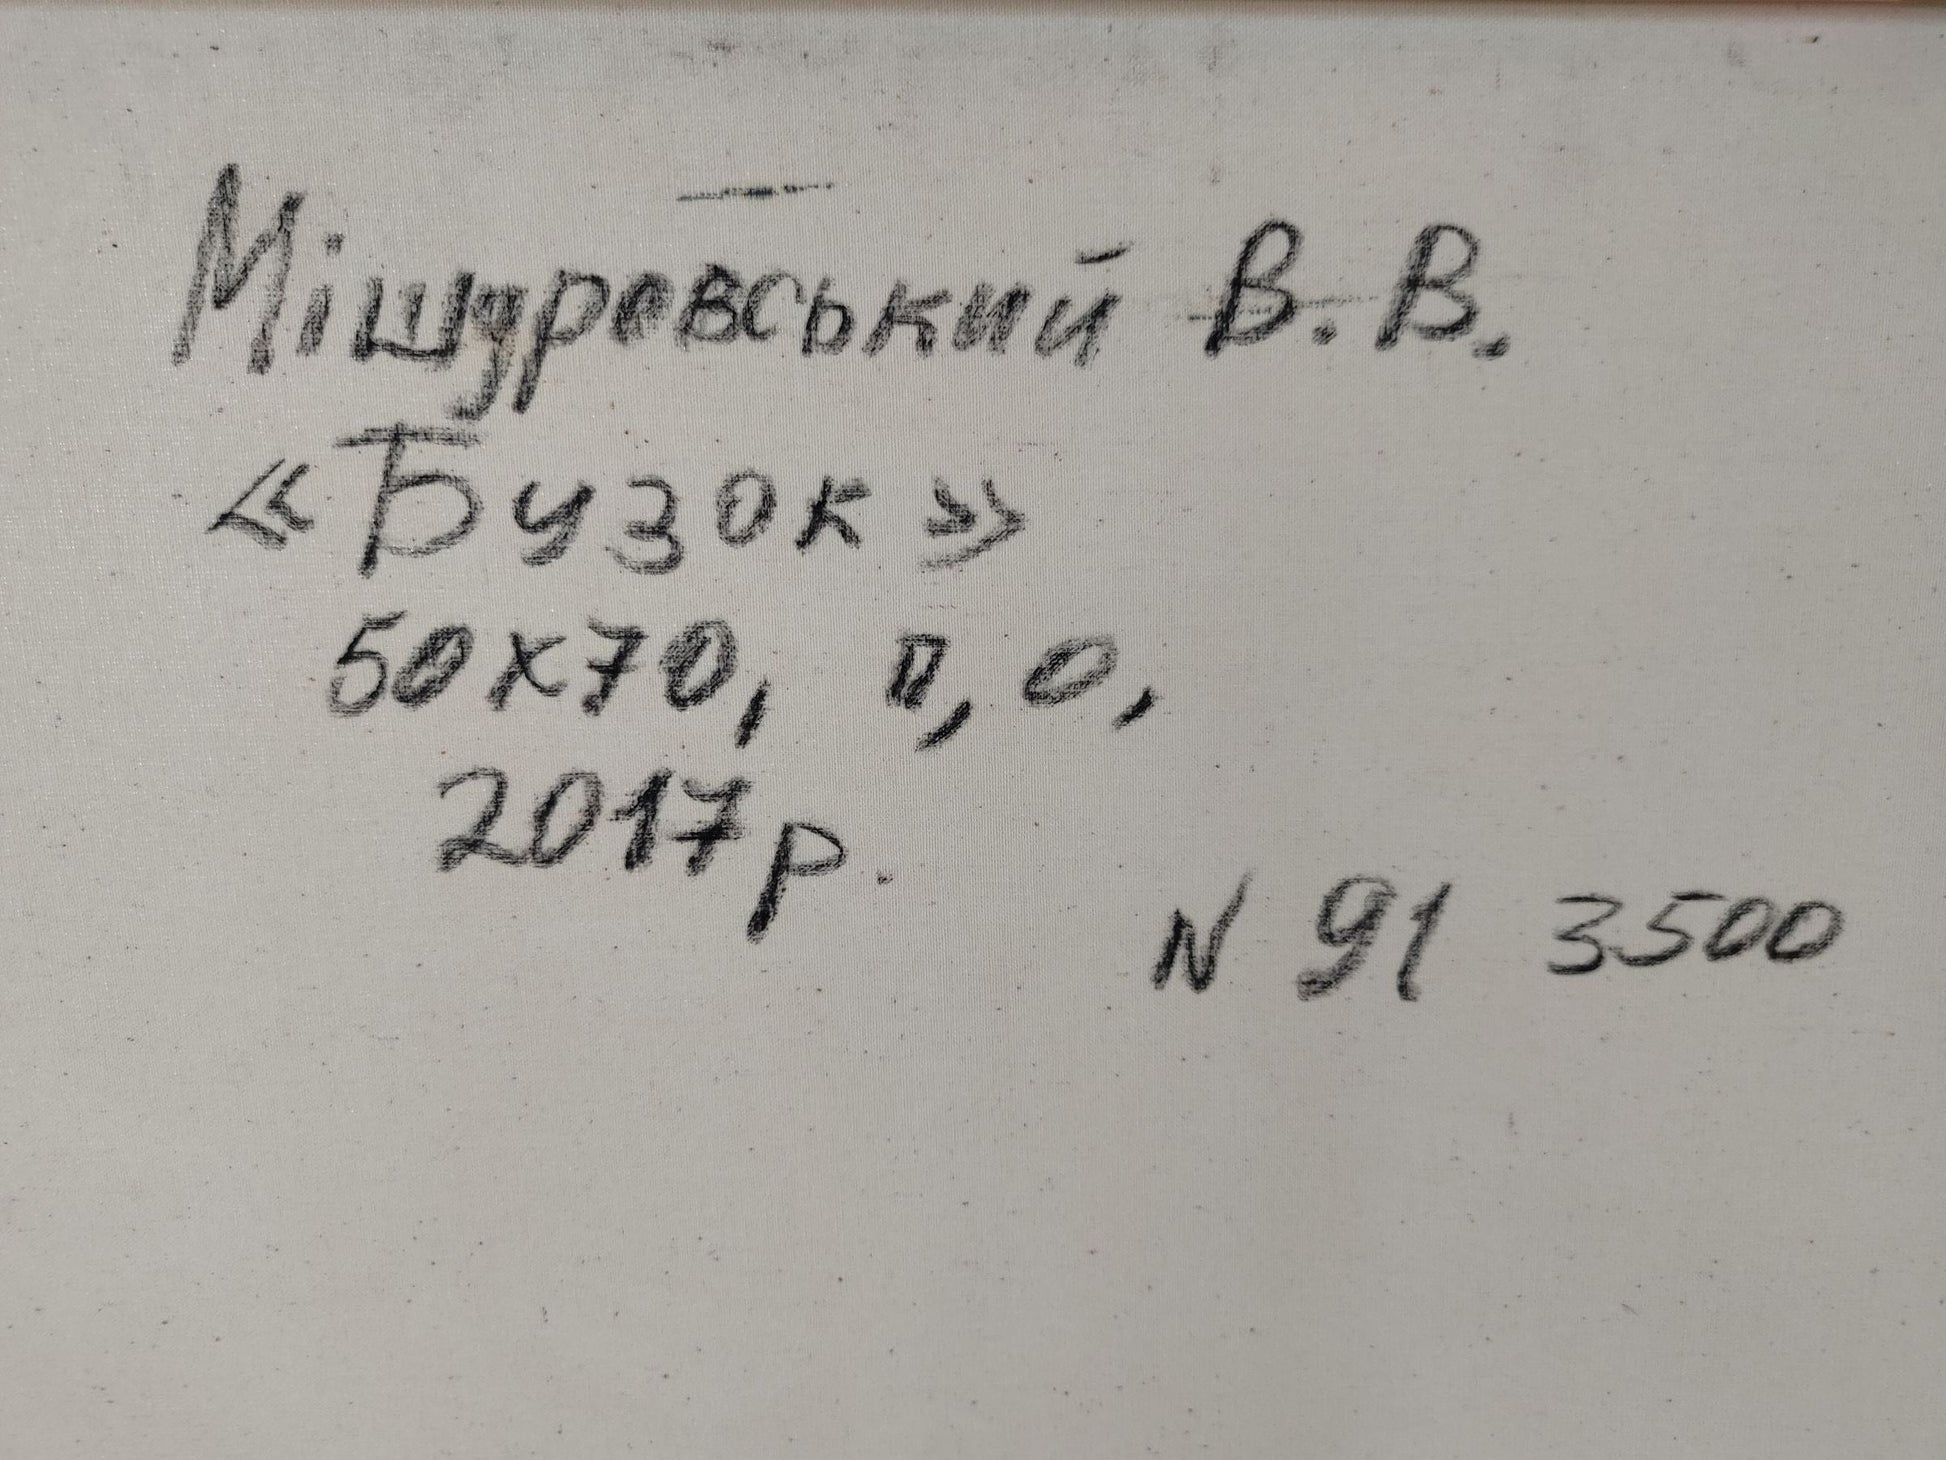 Мішуровський В. В.
«Бузок»
50х70, п, о,
2017р.
N 91 3500